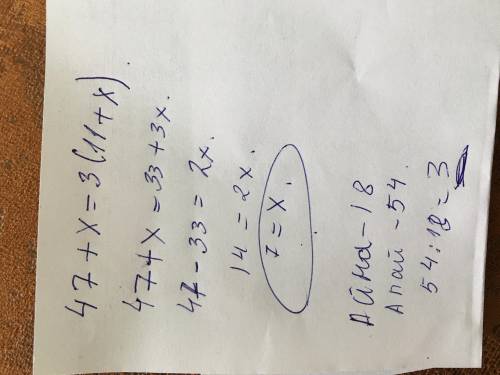 47+x=3(11+x).
47+x=33+3x.
47-33=2x.
14=2x.
7=x.
Айна-18
Апай-54.
54:18=3